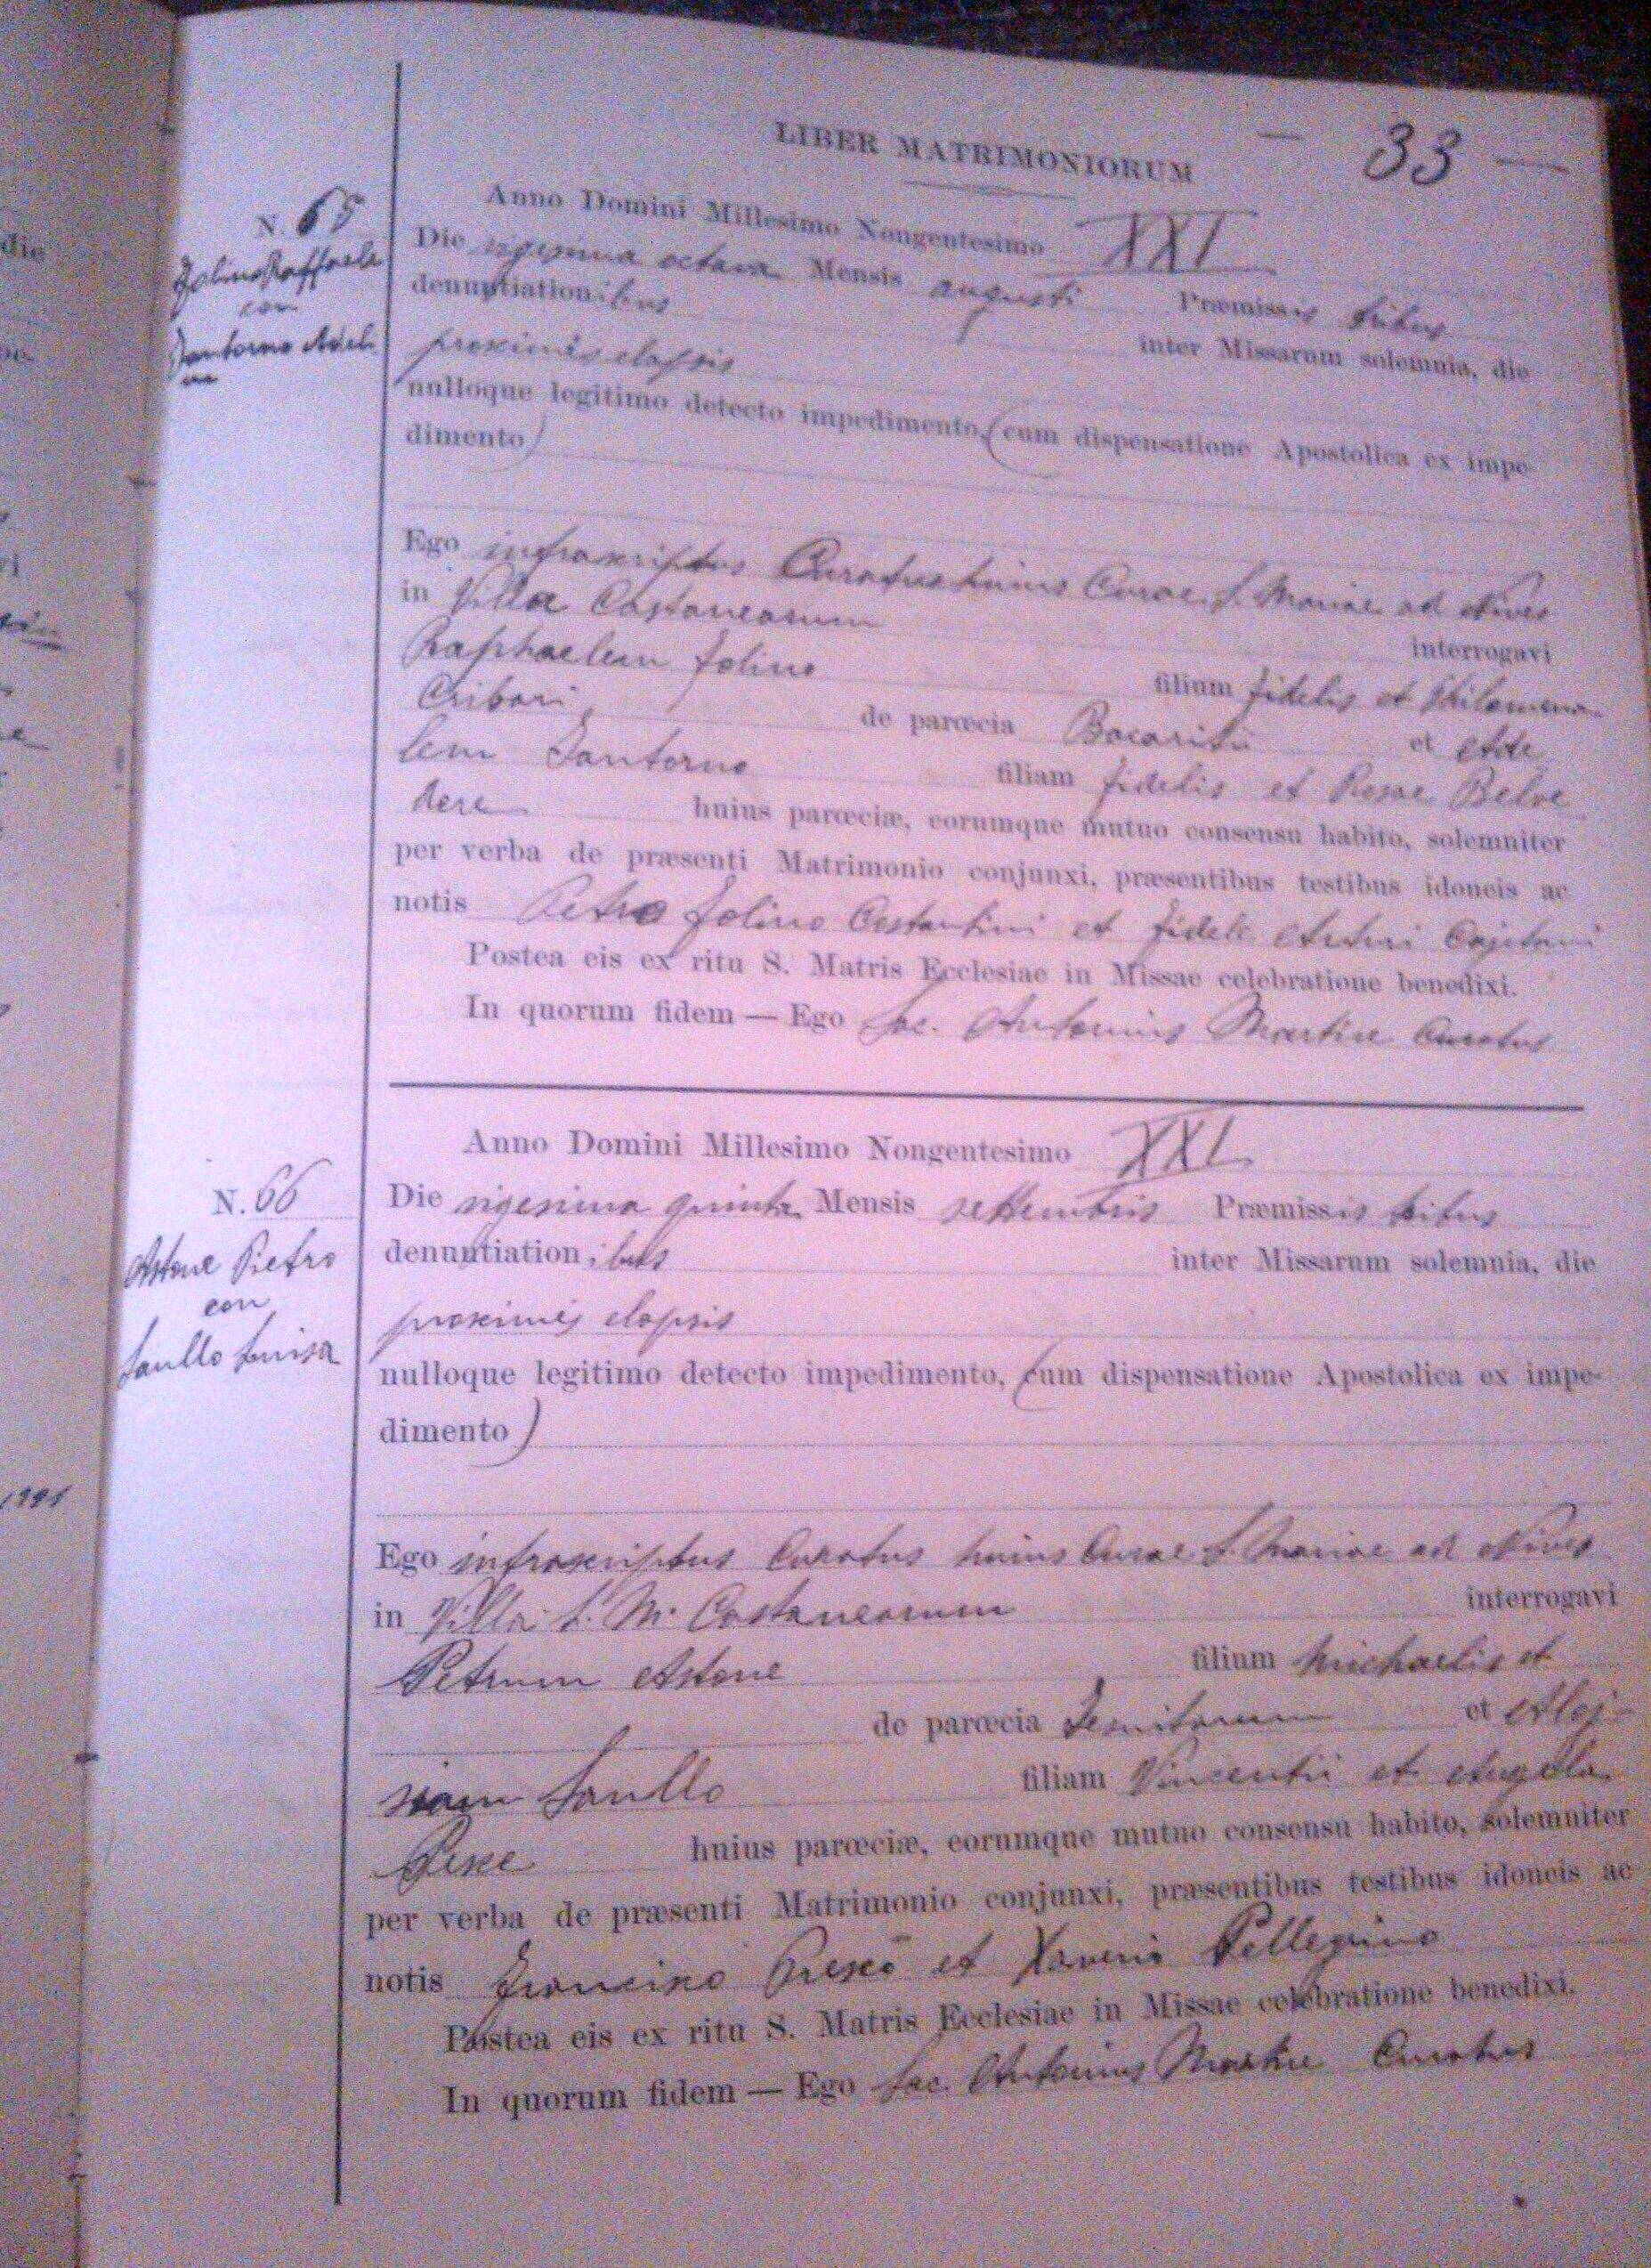 LIBER MATRIMONIORUM — 33 —
N. 65
Folino Raffaele
con
Santorno Adele
Anno Domini Millesimo Nongentesimo XXI
Die vigesima octava Mensis augusti Præmissis tribus
denuntiationibus inter Missarum solemnia, die
proximis elapsis
nulloque legitimo detecto impedimento, (cum dispensatione Apostolica ex impe-
dimento)
Ego infrascriptus Curatus huius Curae S. Mariae ad Nives
in Villa Castanearum interrogavi
Raphaelem Folino filium Fidelis et Philomena
Cribari de parœcia et Ade
lem Santorno filiam Fidelis et Rosae Belve
dere huius parœciæ, eorumque mutuo consensu habito, solemniter
per verba de præsenti Matrimonio conjunxi, præsentibus testibus idoneis ac
notis Petro Folino Costantini et Fidele Cajetani
Postea eis ex ritu S. Matris Ecclesiae in Missae celebratione benedixi.
In quorum fidem — Ego Sac. Antonius Martire Curatus
N. 66
Astone Pietro
con
Saullo Luisa
Anno Domini Millesimo Nongentesimo XXI
Die vigesima quinta Mensis settembris Præmissis tribus
denuntiationibus inter Missarum solemnia, die
proximis elapsis
nulloque legitimo detecto impedimento, (cum dispensatione Apostolica ex impe-
dimento)
Ego infrascriptus Curatus huius Curae S. Mariae ad Nives
in Villa S. M. Castanearum interrogavi
Petrum Astone filium Michaelis et
de parœcia et Aloj-
siam Saullo filiam Vincentii et Angela
huius parœciæ, eorumque mutuo consensu habito, solemniter
per verba de præsenti Matrimonio conjunxi, præsentibus testibus idoneis ac
notis et Xaverio Pellegrino
Postea eis ex ritu S. Matris Ecclesiae in Missae celebratione benedixi.
In quorum fidem — Ego Sac. Antonius Martire Curatus